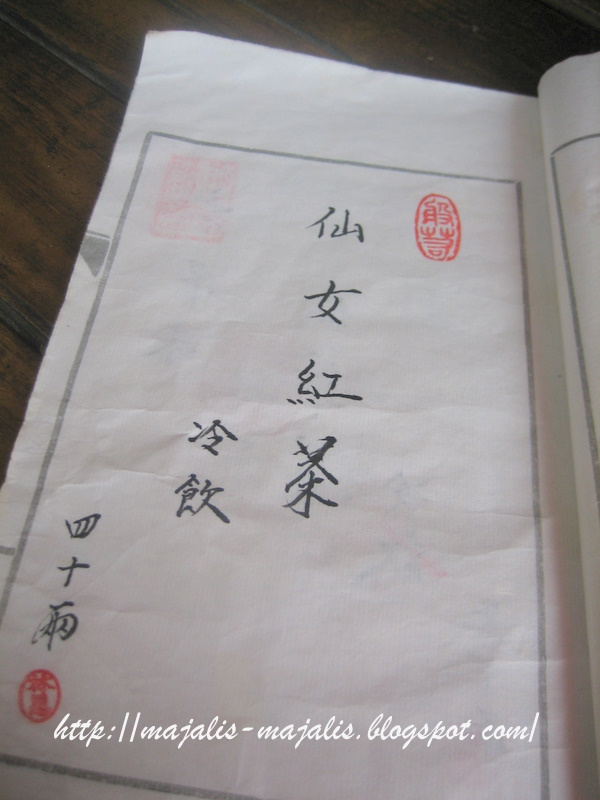 般若
仙女紅茶
冷飲
四十兩
http://majalis-majalis.blogspot.com/